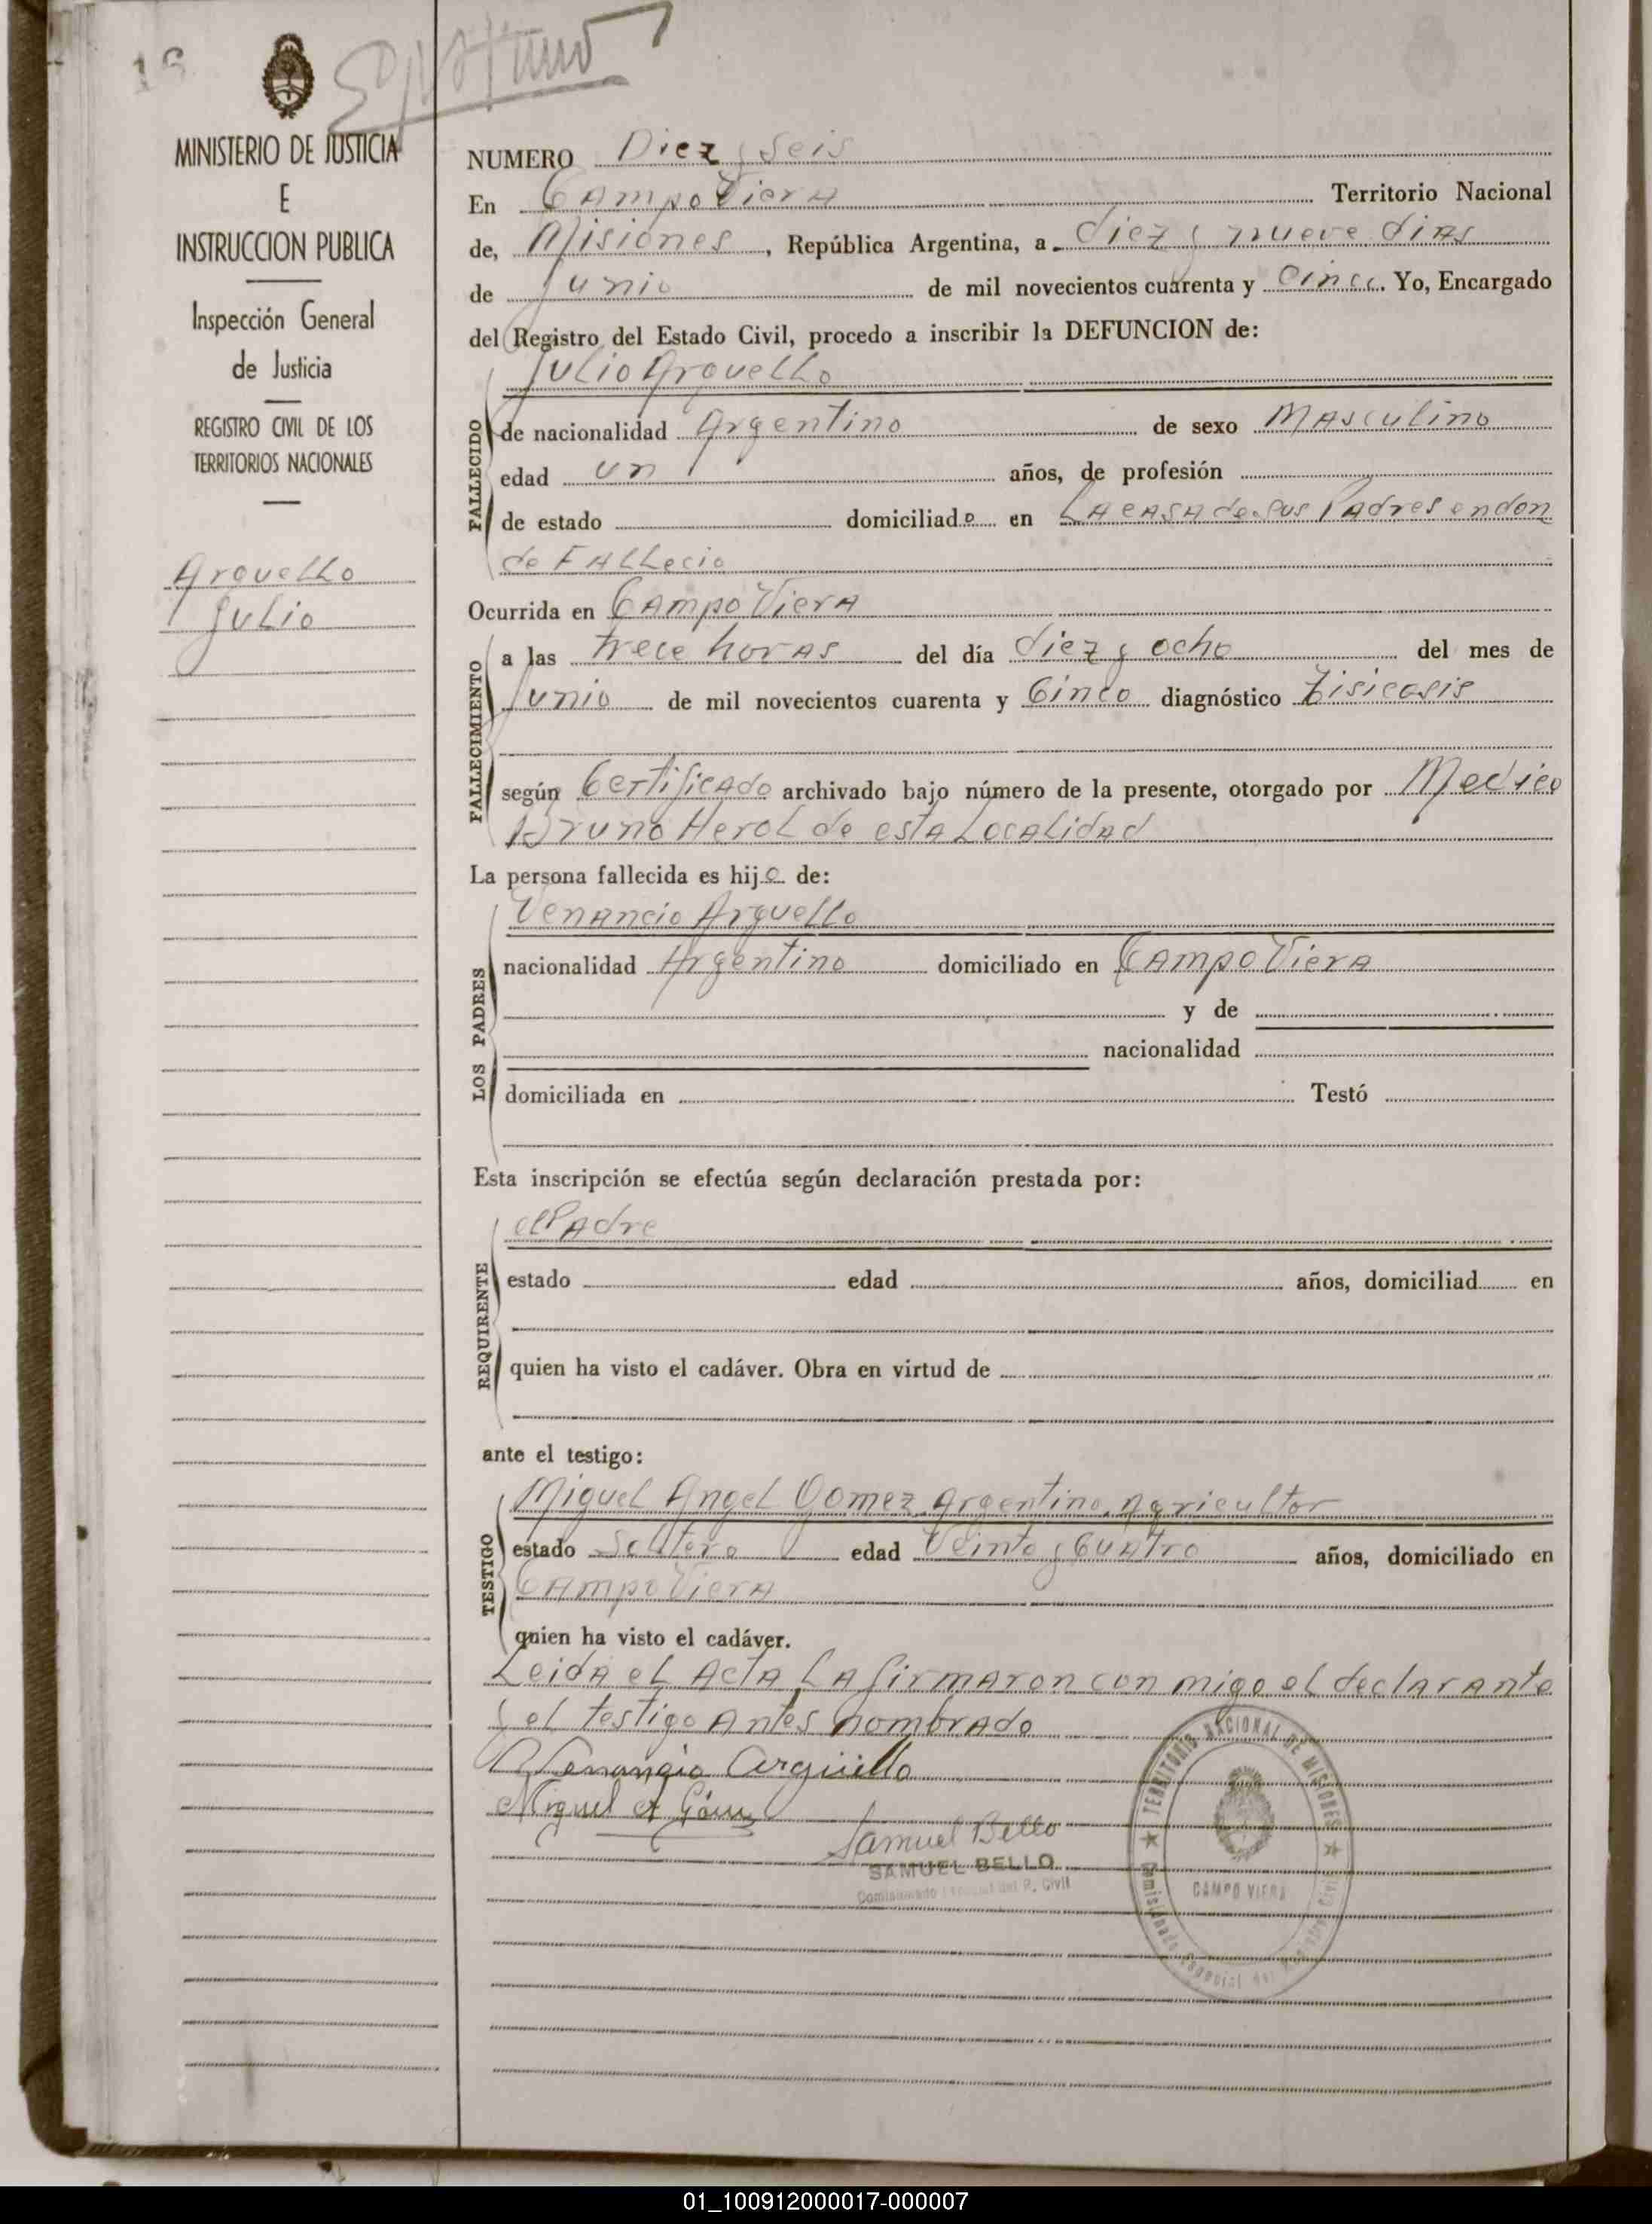 16
MINISTERIO DE JUSTICIA
E
INSTRUCCION PUBLICA
Inspección General
de Justicia
REGISTRO CIVIL DE LOS
TERRITORIOS NACIONALES
Arguello
Julio
NUMERO Diez y Seis
En Campo Viera Territorio Nacional
de, Misiones, República Argentina, a diez y nueve dias
de Junio de mil novecientos cuarenta y Cinco. Yo, Encargado
del Registro del Estado Civil, procedo a inscribir la DEFUNCION de:
FALLECIDO
Julio Arguello
de nacionalidad Argentino de sexo Masculino
edad un años, de profesión
de estado domiciliado en La casa de sus Padres en don
de Fallecio
Ocurrida en Campo Viera
FALLECIMIENTO
a las trece horas del día diez y ocho del mes de
Junio de mil novecientos cuarenta y Cinco diagnóstico
según Certificado archivado bajo número de la presente, otorgado por Medico
Bruno Herol de esta Localidad
La persona fallecida es hijo de:
LOS PADRES
Venancio Arguello
nacionalidad Argentino domiciliado en Campo Viera
y de
nacionalidad
domiciliada en Testó
Esta inscripción se efectúa según declaración prestada por:
REQUIRENTE
el Padre
estado edad años, domiciliad en
quien ha visto el cadáver. Obra en virtud de
ante el testigo:
TESTIGO
Miguel Angel Gomez Argentino, Agricultor
estado Soltero edad Veinte y Cuatro años, domiciliado en
Campo Viera
quien ha visto el cadáver.
Leida el Acta, La firmaron con migo el declarante
y el testigo Antes nombrado
Venancio Argüello
Miguel A Gómez
Samuel Bello
SAMUEL BELLO
Comisionado Especial del R. Civil
TERRITORIO NACIONAL DE MISIONES
CAMPO VIERA
Comisionado Especial del Registro Civil
01_100912000017-000007